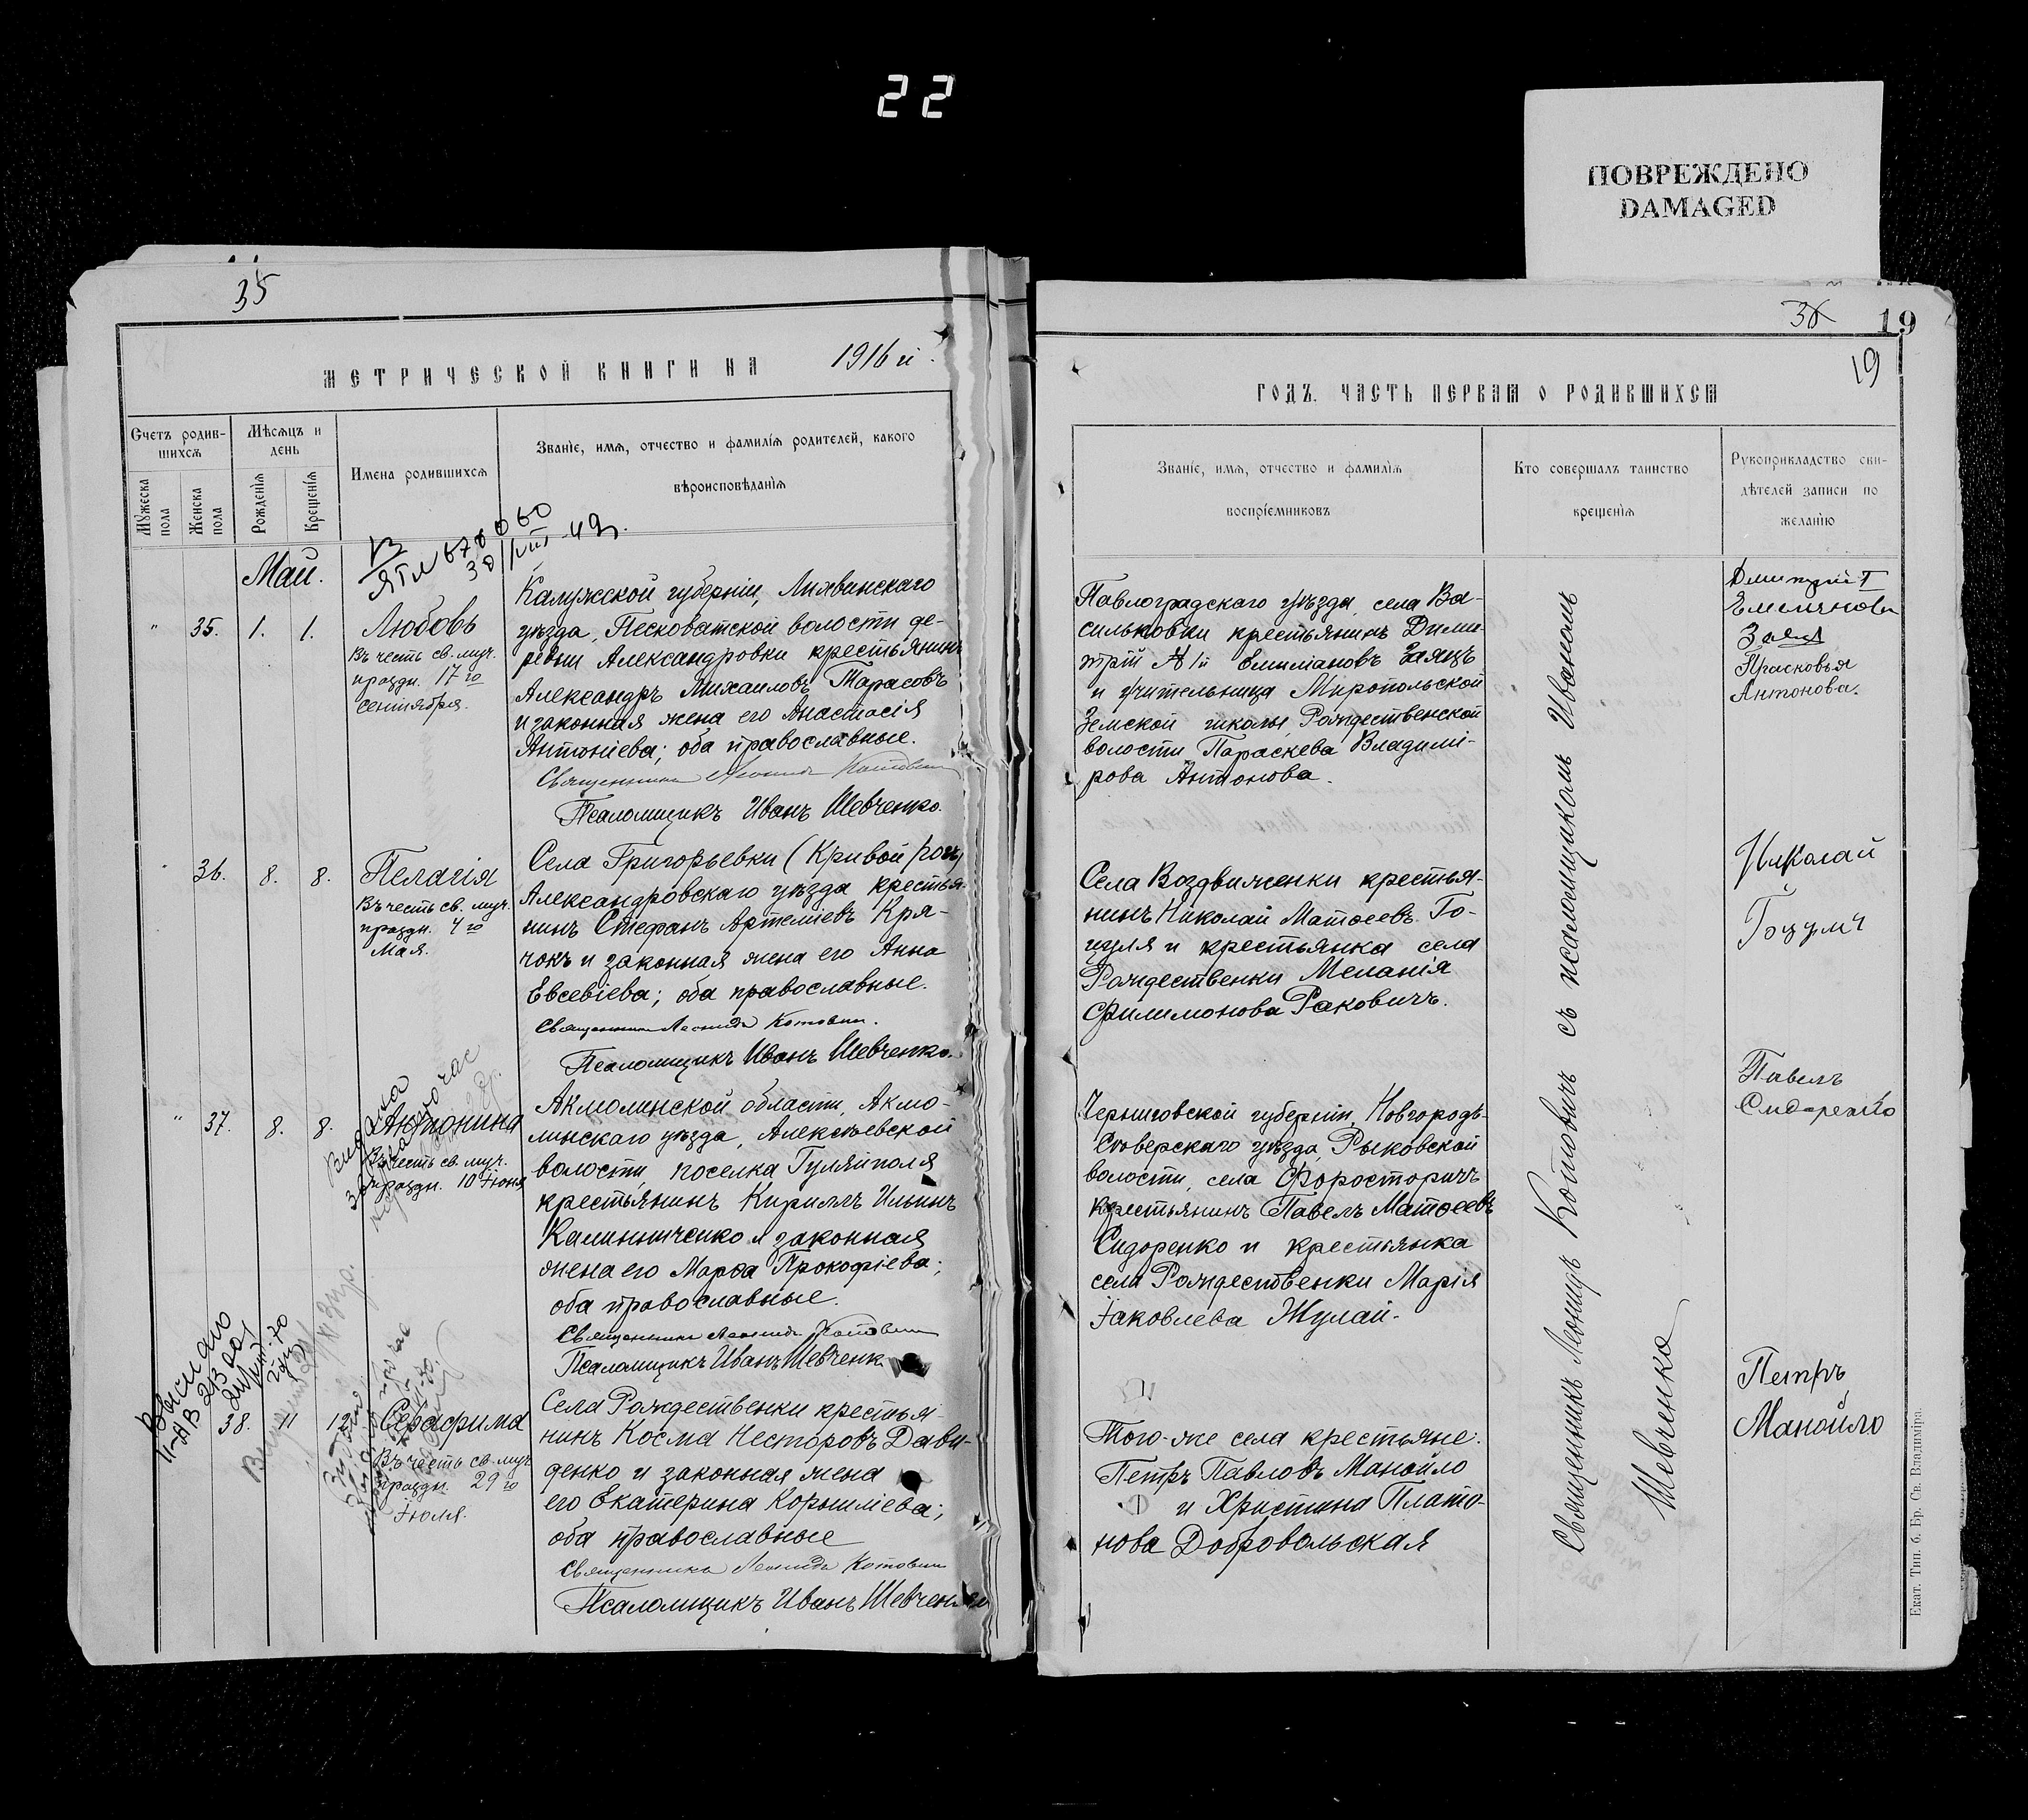 22
ПОВРЕЖДЕНО
DAMAGED
35
МЕТРИЧЕСКОЙ КНИГИ НА 1916 й
Счетъ родив-
шихсѧ
Мѣсѧцъ и
день
Имена родившихсѧ
Званіе, имѧ, отчество и фамилїѧ родителей, какого
вѣроисповѣданїѧ
Мꙋжеска
пола
Женска
пола
Рожденїѧ
Крещенїѧ
Май.
" 35. 1. 1. Любовь
Въ честь св. муч.
праздн. 17го
Сентября.
Калужской губерніи, Лихвинскаго
уѣзда, Песковатской волости де-
ревни Александровки крестьянинъ
Александръ Михаиловъ Тарасовъ
и законная жена его Анастасія
Антоніева; оба православные.
Священникъ Леонидъ Котовичъ
Псаломщикъ Иванъ Шевченко.
" 36. 8. 8. Пелагія
Въ честь св. муч.
праздн. 4го
Мая.
Села Григорьевки (Кривой рогъ)
Александровскаго уѣзда крестья-
нинъ Стефанъ Артеміевъ Кря-
чокъ и законная жена его Анна
Евсевіева; оба православные.
Священникъ Леонидъ Котовичъ.
Псаломщикъ Иванъ Шевченко.
" 37. 8. 8. Антонина
Въ честь св. муч.
праздн. 10 Іюня
Акмолинской области, Акмо-
линскаго уѣзда, Алексѣевской
волости, поселка Гуляйполя
крестьянинъ Кириллъ Ильинъ
Калиниченко и законная
жена его Марѳа Прокофіева;
оба православные.
Священникъ Леонидъ Котовичъ
Псаломщикъ Иванъ Шевченк
38. 11 12. Серафима
Въ честь св. муч.
праздн. 29го
Іюля.
Села Рождественки крестья-
нинъ Косма Несторовъ Дави-
денко и законная жена
его Екатерина Корниліева;
оба православные
Священникъ Леонидъ Котовичъ
Псаломщикъ Иванъ Шевченко
36 19
19
ГОДЪ. ЧАСТЬ ПЕРВАѦ О РОДИВШИХСѦ
Званіе, имѧ, отчество и фамилїѧ
воспрїемниковъ
Кто совершалъ таинство
крещенїѧ
Рꙋкоприкладство сви-
дѣтелей записи по
желанїю
Павлоградскаго уѣзда, села Ва-
сильковки крестьянинъ Дими-
трій 1й Емиліановъ Заяцъ
и учительница Миропольской
Земской школы, Рождественской
волости Параскева Владимі-
рова Антонова.
Дмитрій I
Емельяновъ
Заяц
Прасковья
Антонова.
Села Воздвиженки крестья-
нинъ Николай Матѳеевъ Го-
цуля и крестьянка села
Рождественки Меланія
Филимонова Раковичъ.
Николай
Черниговской губерніи, Новгородъ-
Сѣверскаго уѣзда, Рыковской
волости, села Форосторичъ
крестьянинъ Павелъ Матѳеевъ
Сидоренко и крестьянка
села Рождественки Марія
Іаковлева Жулай.
Павелъ
Сидоренко
Того-же села крестьяне.
Петръ Павловъ Манойло
и Христина Плато-
нова Добровольская
Петръ
Манойло
Священникъ Леонидъ Котовичъ съ псаломщикомъ Иваномъ
Шевченко
Екат. Тип. б. Бр. Св. Владиміра.